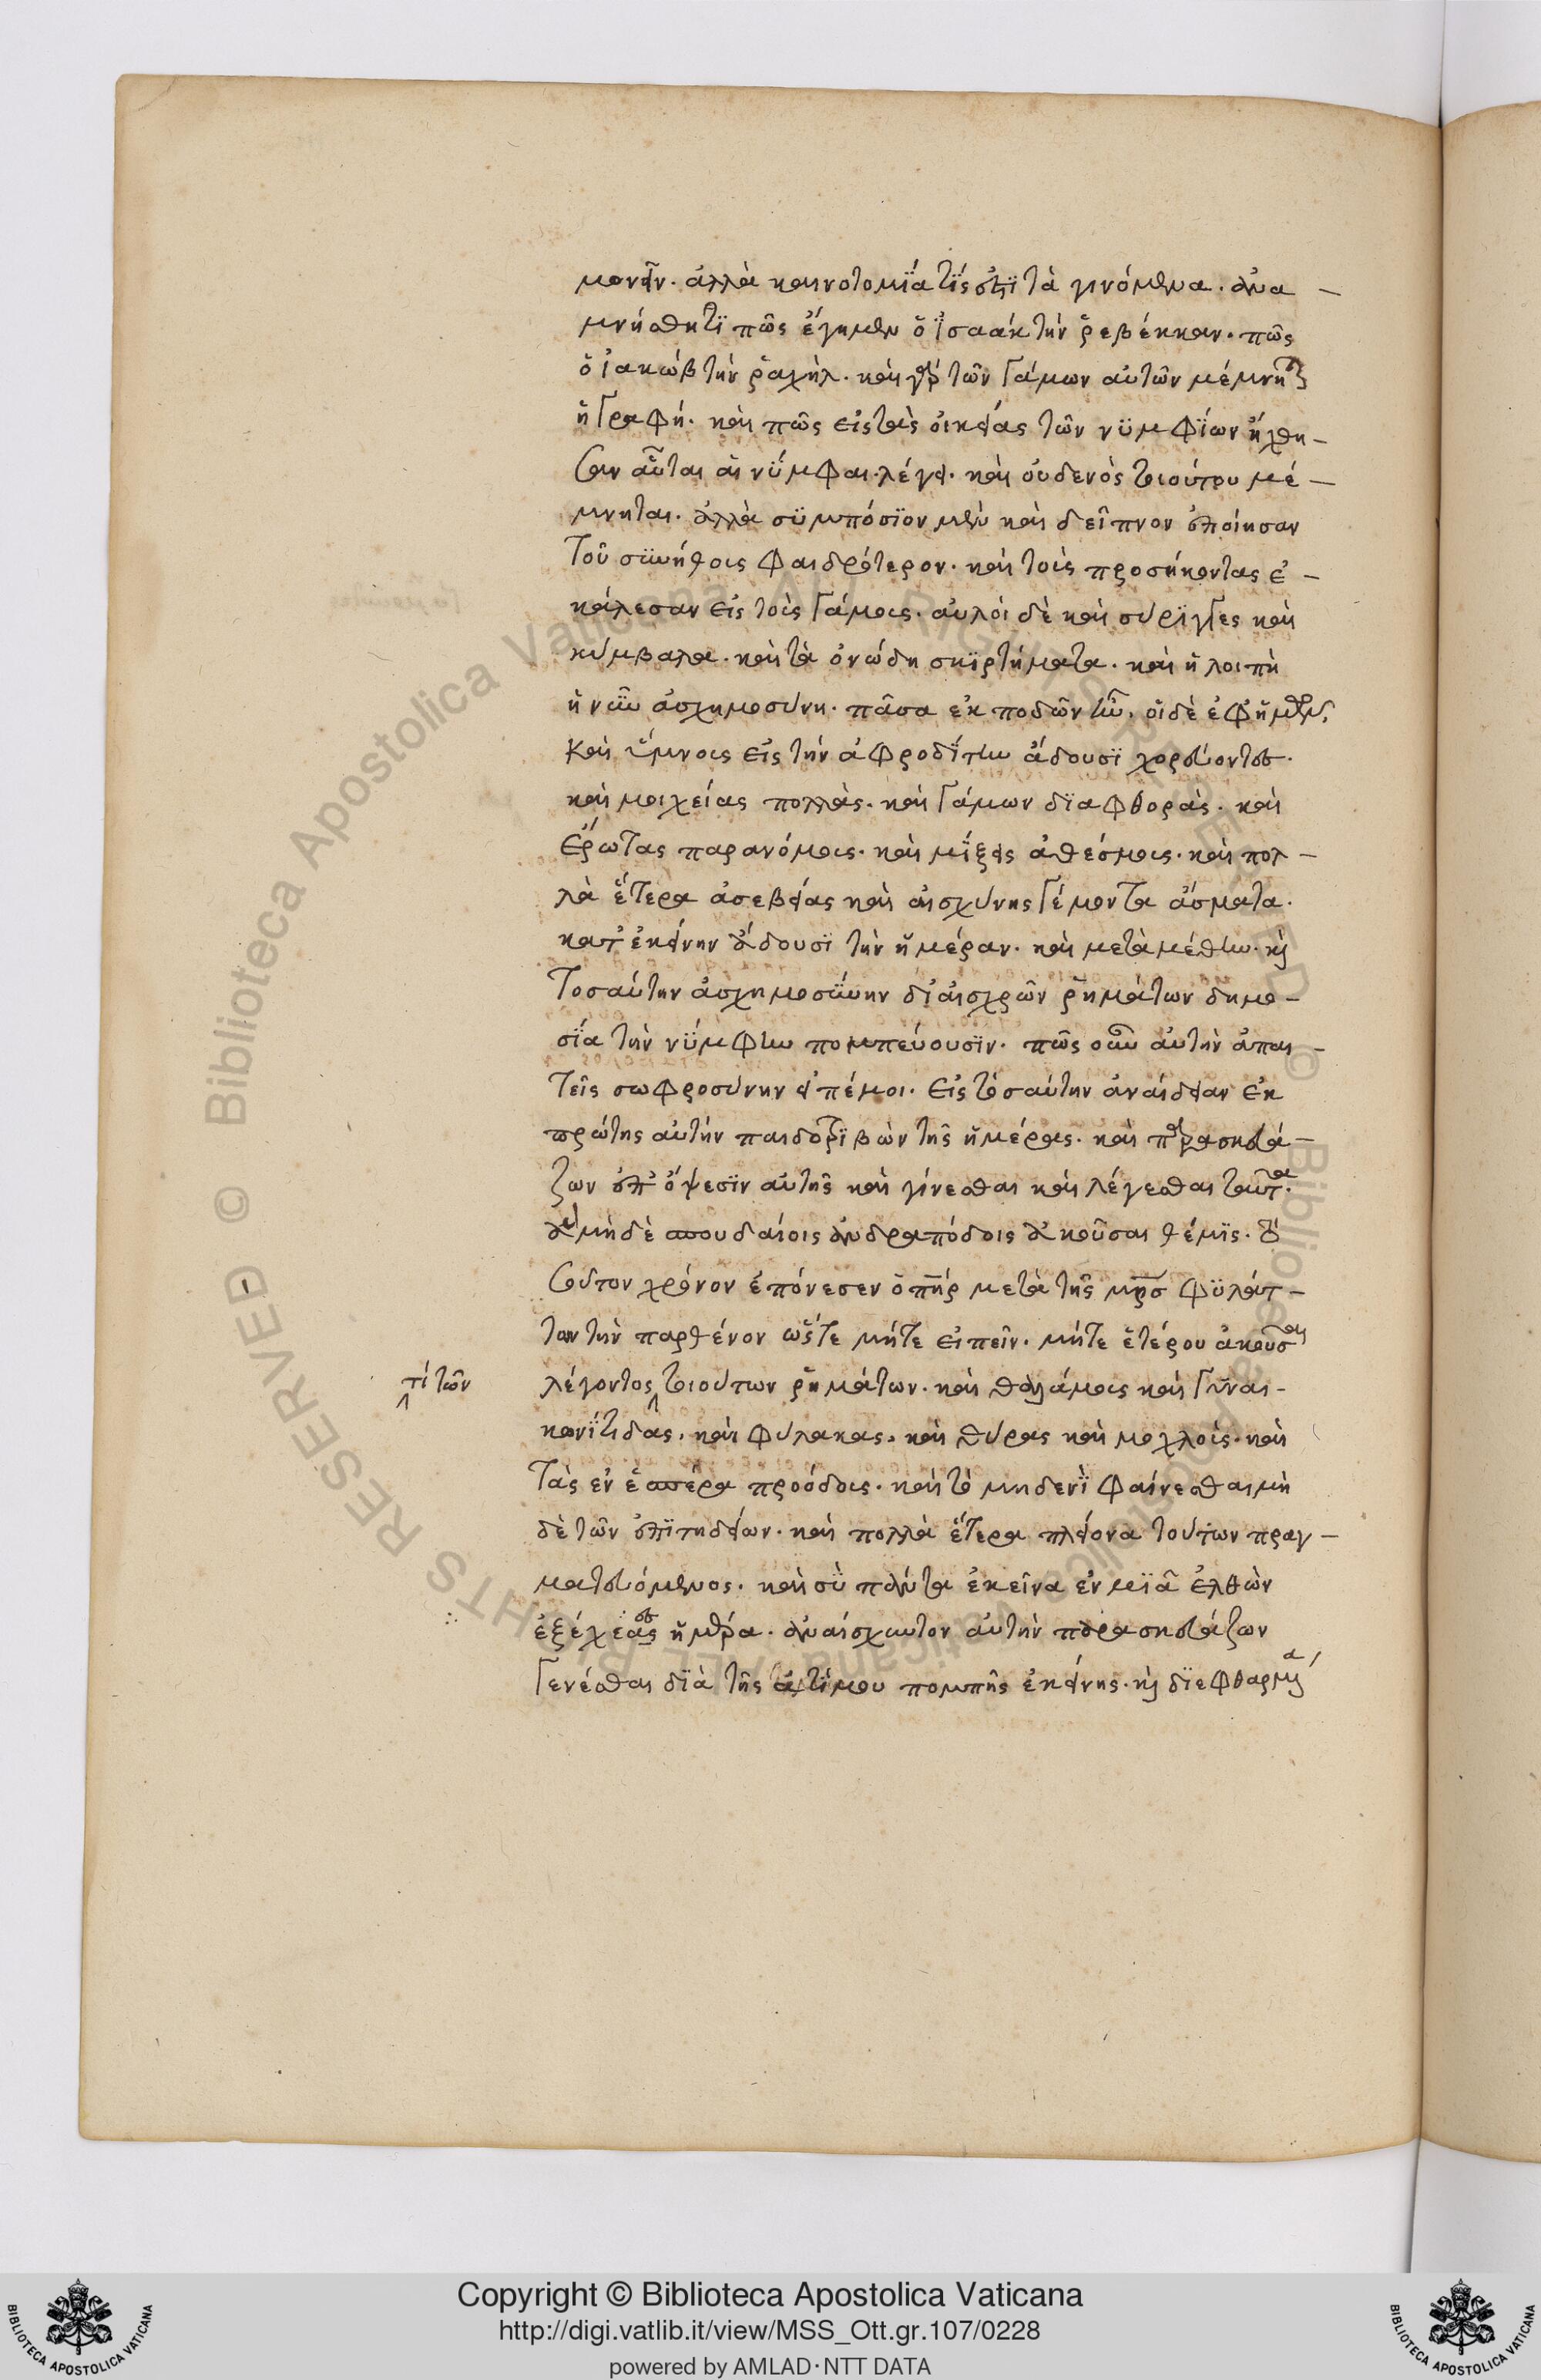 μονεῖν. ἀλλὰ καινοτομΐα τίς ἐστϊ τὰ γινόμενα. ἀνα-
μνήσθητϊ πῶς ἔγημεν ὁ ϊσαάκ τὴν ῥεβέκκαν. πῶς
ὁ ϊακώβ τὴν ῥαχήλ. καὶ γὰρ τῶν γάμων αὐτῶν μέμνηται
ἡ γραφή. καὶ πῶς εἰς τὰς οἰκείας τῶν νϋμφΐων ἤχθη-
σαν αὗται αἱ νΰμφαι. λέγει. καὶ οὐδενὸς τοιούτου μέ-
μνηται. ἀλλὰ σϋμπόσϊον μὲν καὶ δεῖπνον ἐποίησαν
τοῦ συνήθους φαιδρότερον. καὶ τοὺς προσήκοντας ἐ-
κάλεσαν εἰς τοὺς γάμους. αὐλοὶ δὲ καὶ σύρϊγγες καὶ
κύμβαλα. καὶ τὰ ὀνώδη σκϊρτήματα. καὶ ἡ λοιπὴ
ἡ νῦν ἀσχημοσύνη. πᾶσα ἐκ ποδῶν ἦν. οἱ δὲ ἐφ ἡμῶν,
καὶ ὕμνους εἰς τὴν ἀφροδΐτην ἄδουσϊ χορεύοντες.
καὶ μοιχείας πολλὰς. καὶ γάμων δϊαφθορὰς. καὶ
ἔρωτας παρανόμους. καὶ μΐξεις ἀθέσμους. καὶ πολ-
λὰ ἕτερα ἀσεβείας καὶ αἰσχύνης γέμοντα ἄσματα.
κατ' ἐκείνην ἄδουσϊ τὴν ἡμέραν. καὶ μετὰ μέθην. καὶ
τοσαύτην ἀσχημοσΰνην δι' αἰσχρῶν ῥημάτων δημο-
σΐα τὴν νΰμφην πομπεύουσϊν. πῶς οὖν αὐτὴν ἀπαι-
τεῖς σωφροσύνην εἰπέ μοι. εἰς τοσαύτην ἀναίδειαν ἐκ
πρώτης αὐτὴν παιδοτρϊβῶν τῆς ἡμέρας. καὶ παρασκευά-
ζων ἐπ' ὄψεσϊν αὐτῆς καὶ γίνεσθαι καὶ λέγεσθαι ταῦτα.
ἃ μὴ δὲ σπουδαίοις ἀνδραπόδοις ἀκοῦσαι θέμϊς. το
σοῦτον χρόνον ἐπόνεσεν ὁ πηρ μετὰ τῆς μρσ φϋλάτ-
των τὴν παρθένον ὥστε μήτε εἰπεῖν. μήτε ἑτέρου ἀκοῦσαι
τί τῶν
λέγοντος τοιούτων ῥημάτων. καὶ θαλάμους καὶ γυναι-
κωνΐτιδας. καὶ φύλακας. καὶ θύρας καὶ μοχλοὺς. καὶ
τὰς ἐν ἑσπέρα προόδους. καὶ τὸ μηδενϊ φαίνεσθαι μὴ
δὲ τῶν ἐπϊτηδείων. καὶ πολλὰ ἕτερα πλείονα τούτων πραγ-
ματευόμενος. καὶ σὺ πάντα ἐκεῖνα ἐν μϊᾶ ἐλθὼν
ἐξέχεας ἡμέρα. ἀναίσχυντον αὐτὴν παρασκευάζων
γενέσθαι δϊὰ τῆς ἀτίμου πομπῆς ἐκείνης. καὶ δϊεφθαρμένα
Copyright © Biblioteca Apostolica Vaticana
http://digi.vatlib.it/view/MSS_Ott.gr.107/0228
powered by AMLAD·NTT DATA